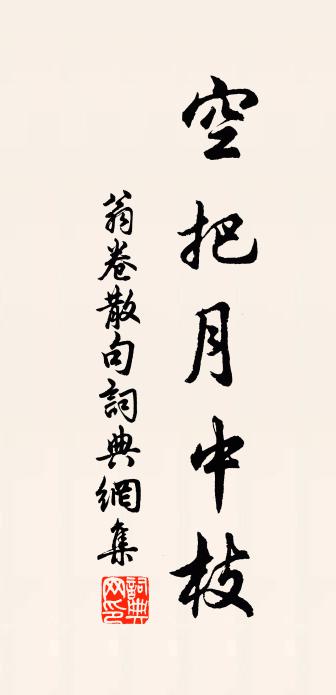 空把月中枝
翁卷散句詞典網集
詞典網印